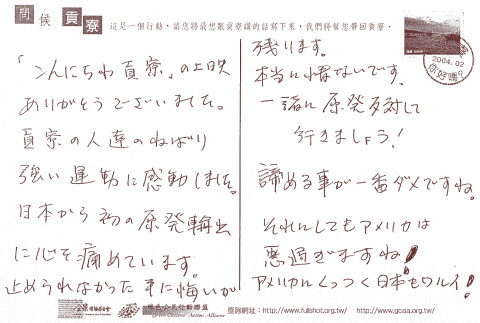 問候貢寮
這是一個行動，請您將最想跟貢寮講的話寫下來，我們將幫您帶回貢寮。
「こんにちわ貢寮」の上映
ありがとうございました。
貢寮の人達のねばり
強い運動に感動しました。
日本から初の原発輸出
に心を痛めています。
止められなかった事に悔いが
残ります。
本当に情ないです。
一諸に原発反対して
行きましょう！
諦める事が一番ダメですね。
それにしてもアメリカは
悪過ぎますね！
アメリカにくっつく日本もワルイ！
2004.02
綠色公民行動聯盟
Green Citizens' Action Alliance
查詢網址：http://www.fullshot.org.tw/ http://www.gcaa.org.tw/